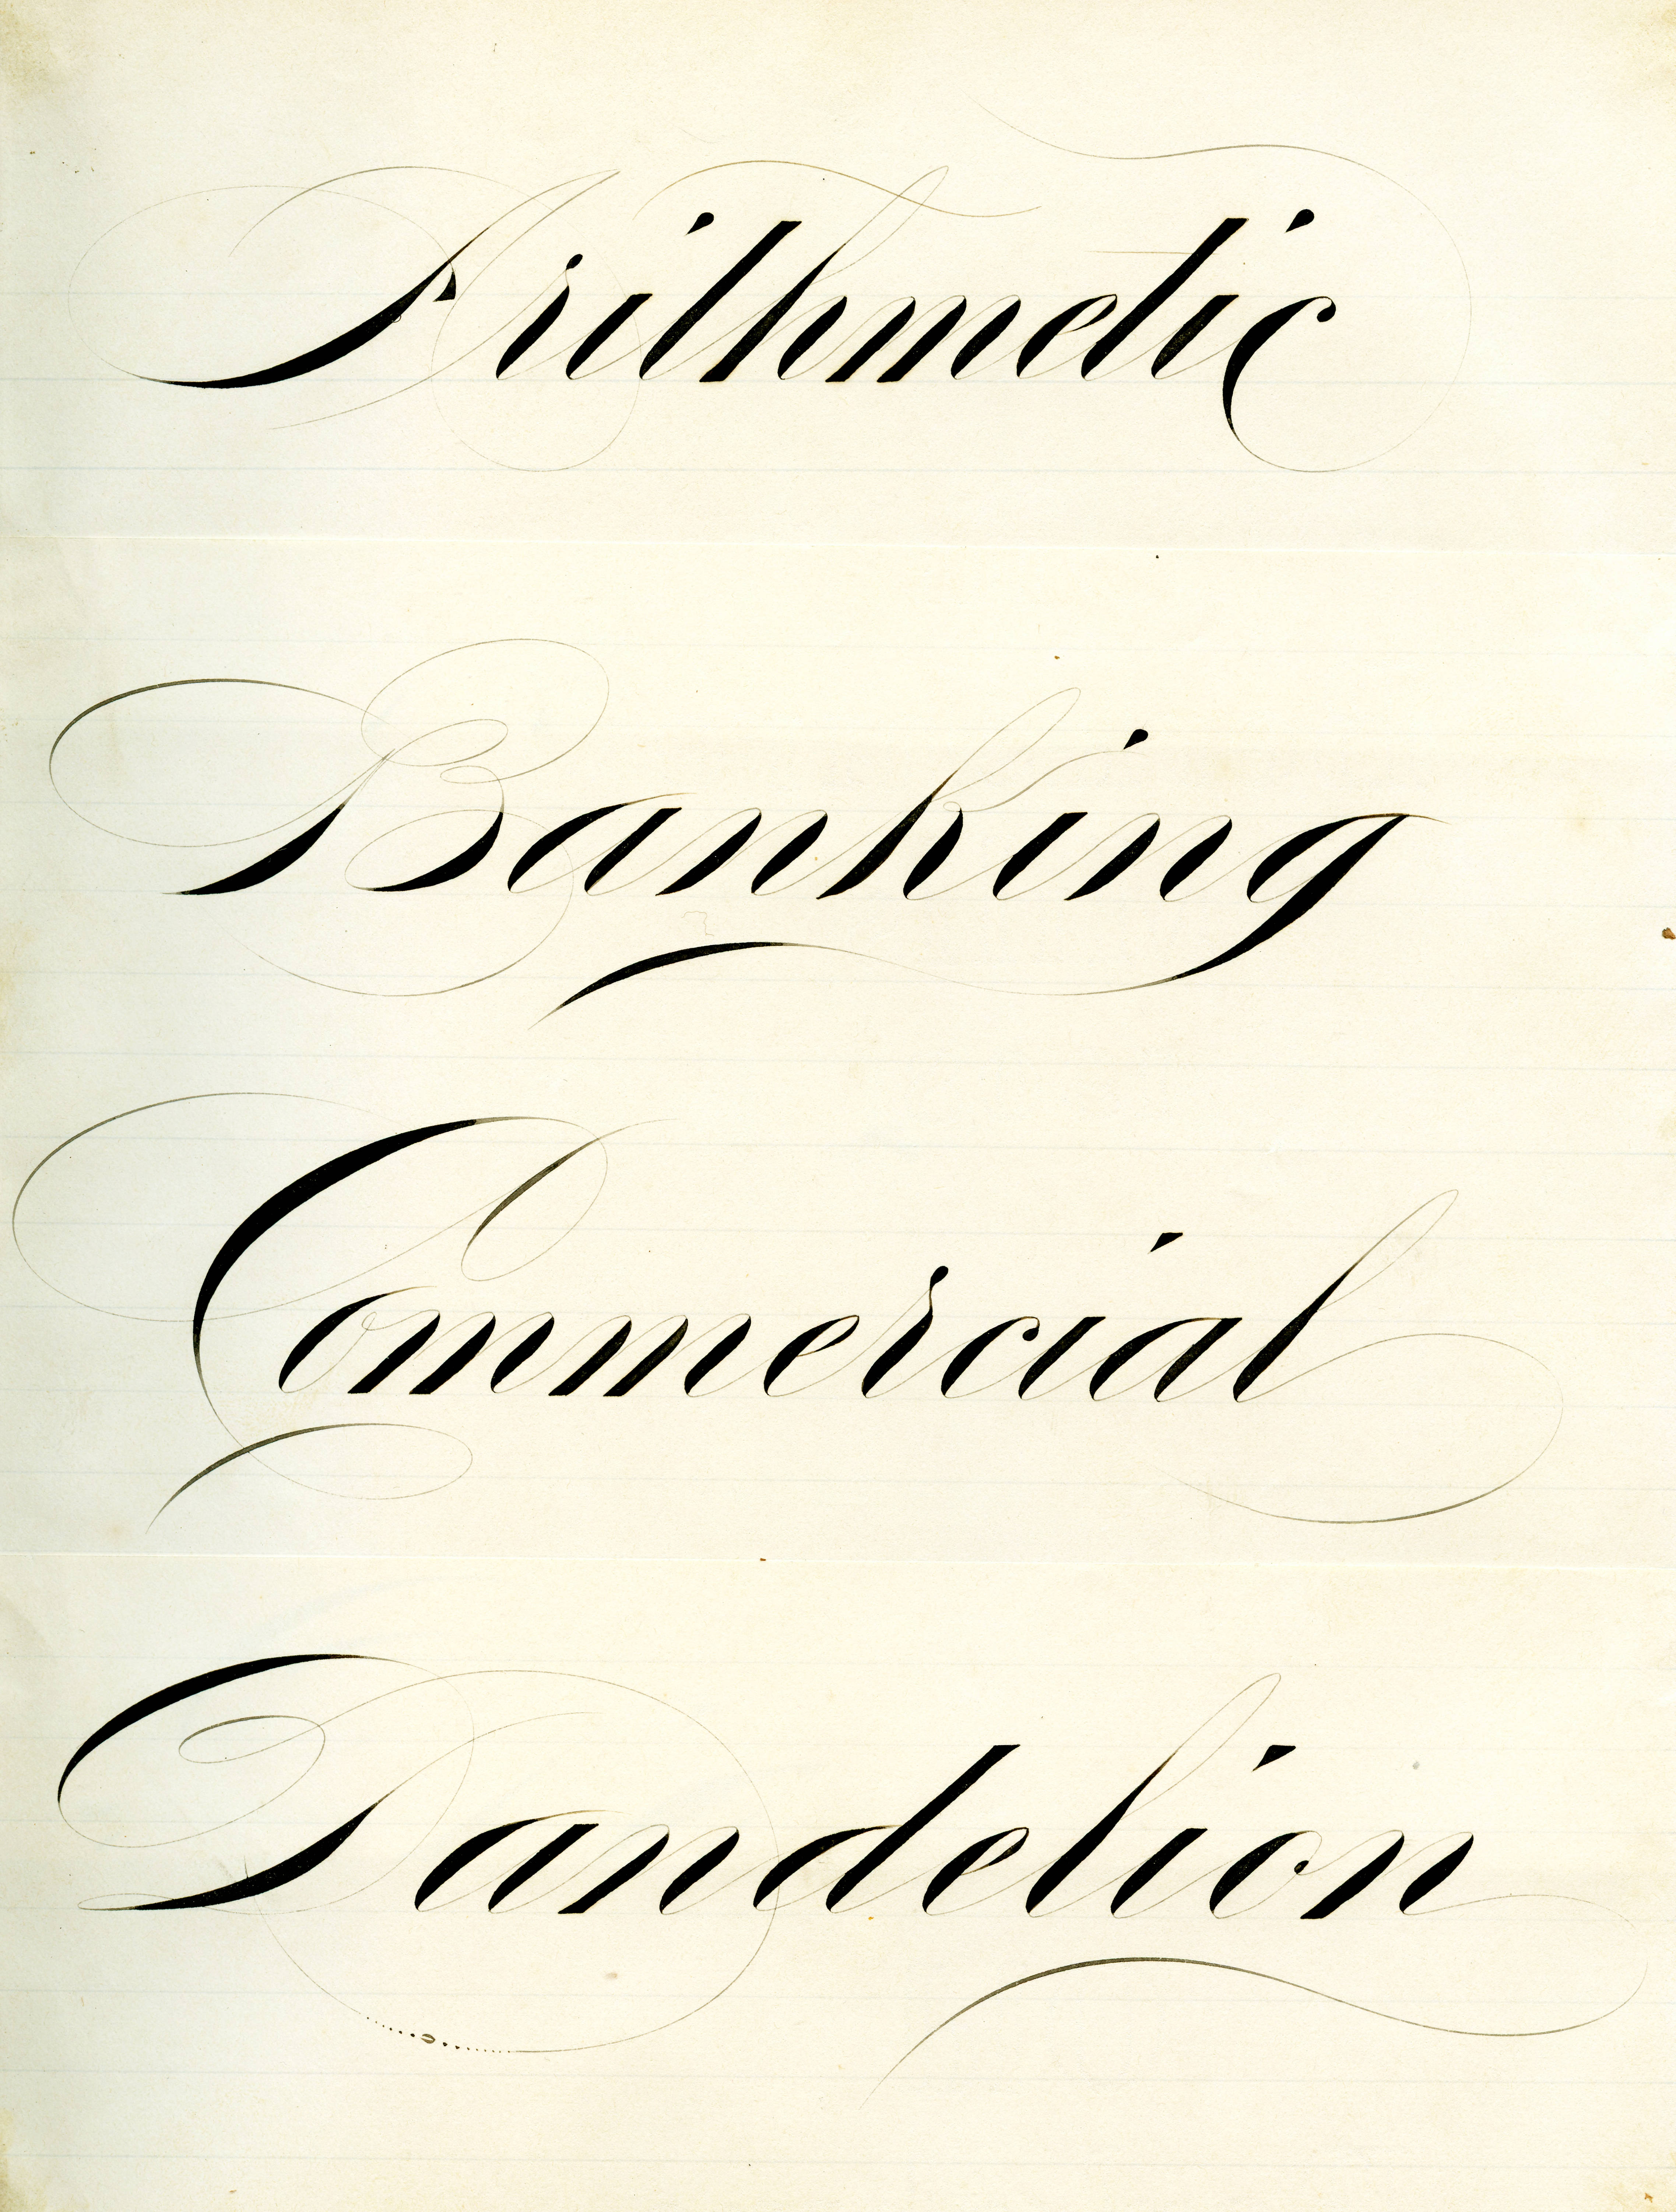 Arithmetic
Banking
Commercial
Dandelion